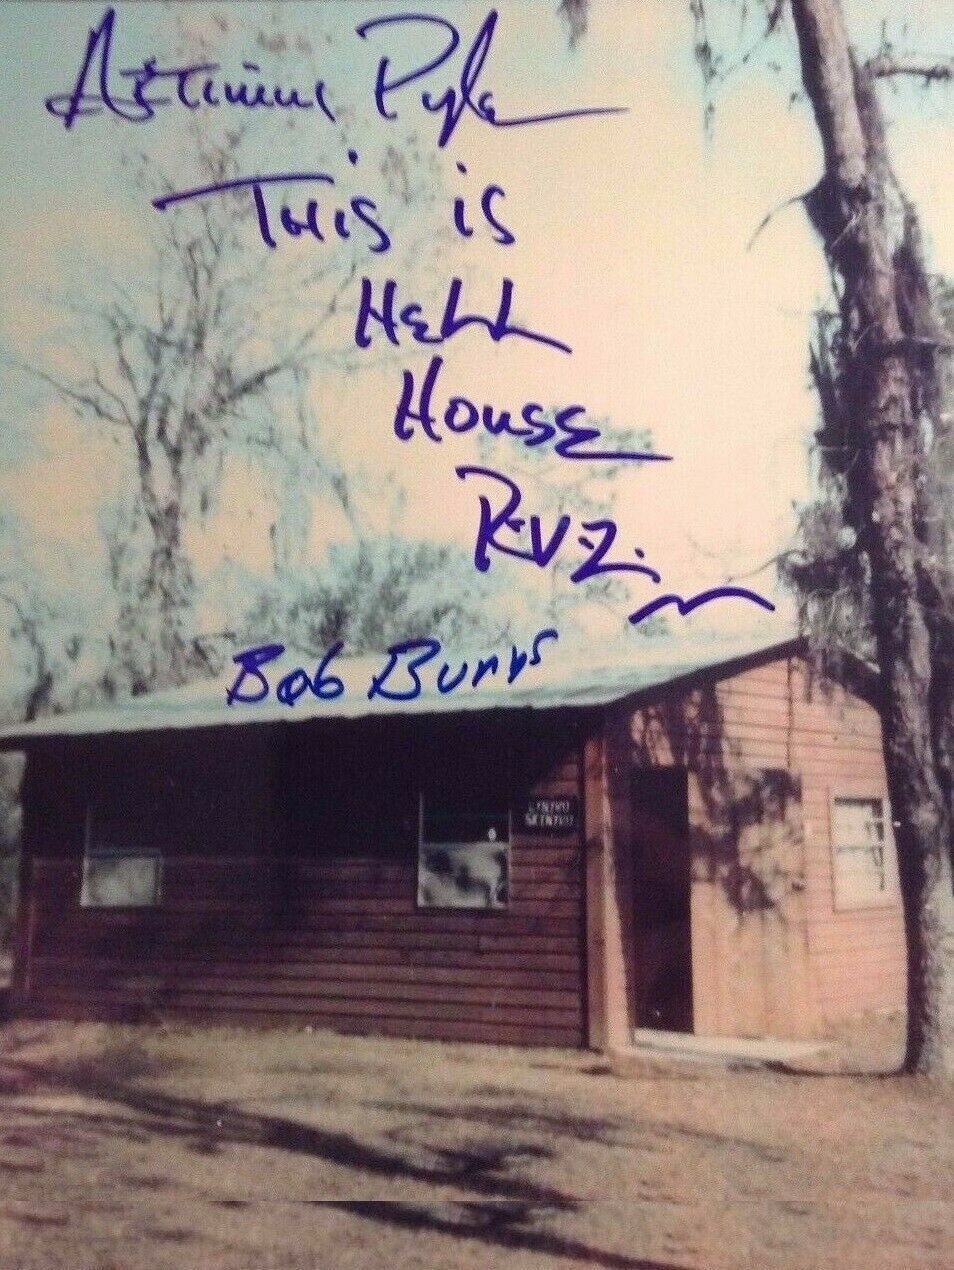 Artimus Pyle
This is
Hell
House
R.V.Z.
Bob Burns